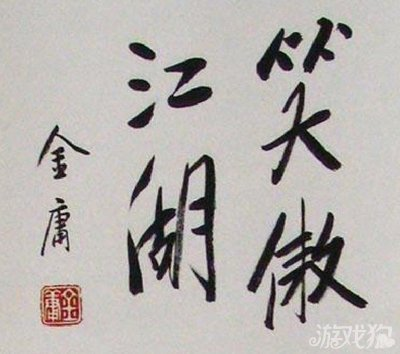 笑傲
江湖
金庸
金庸
游戏狗